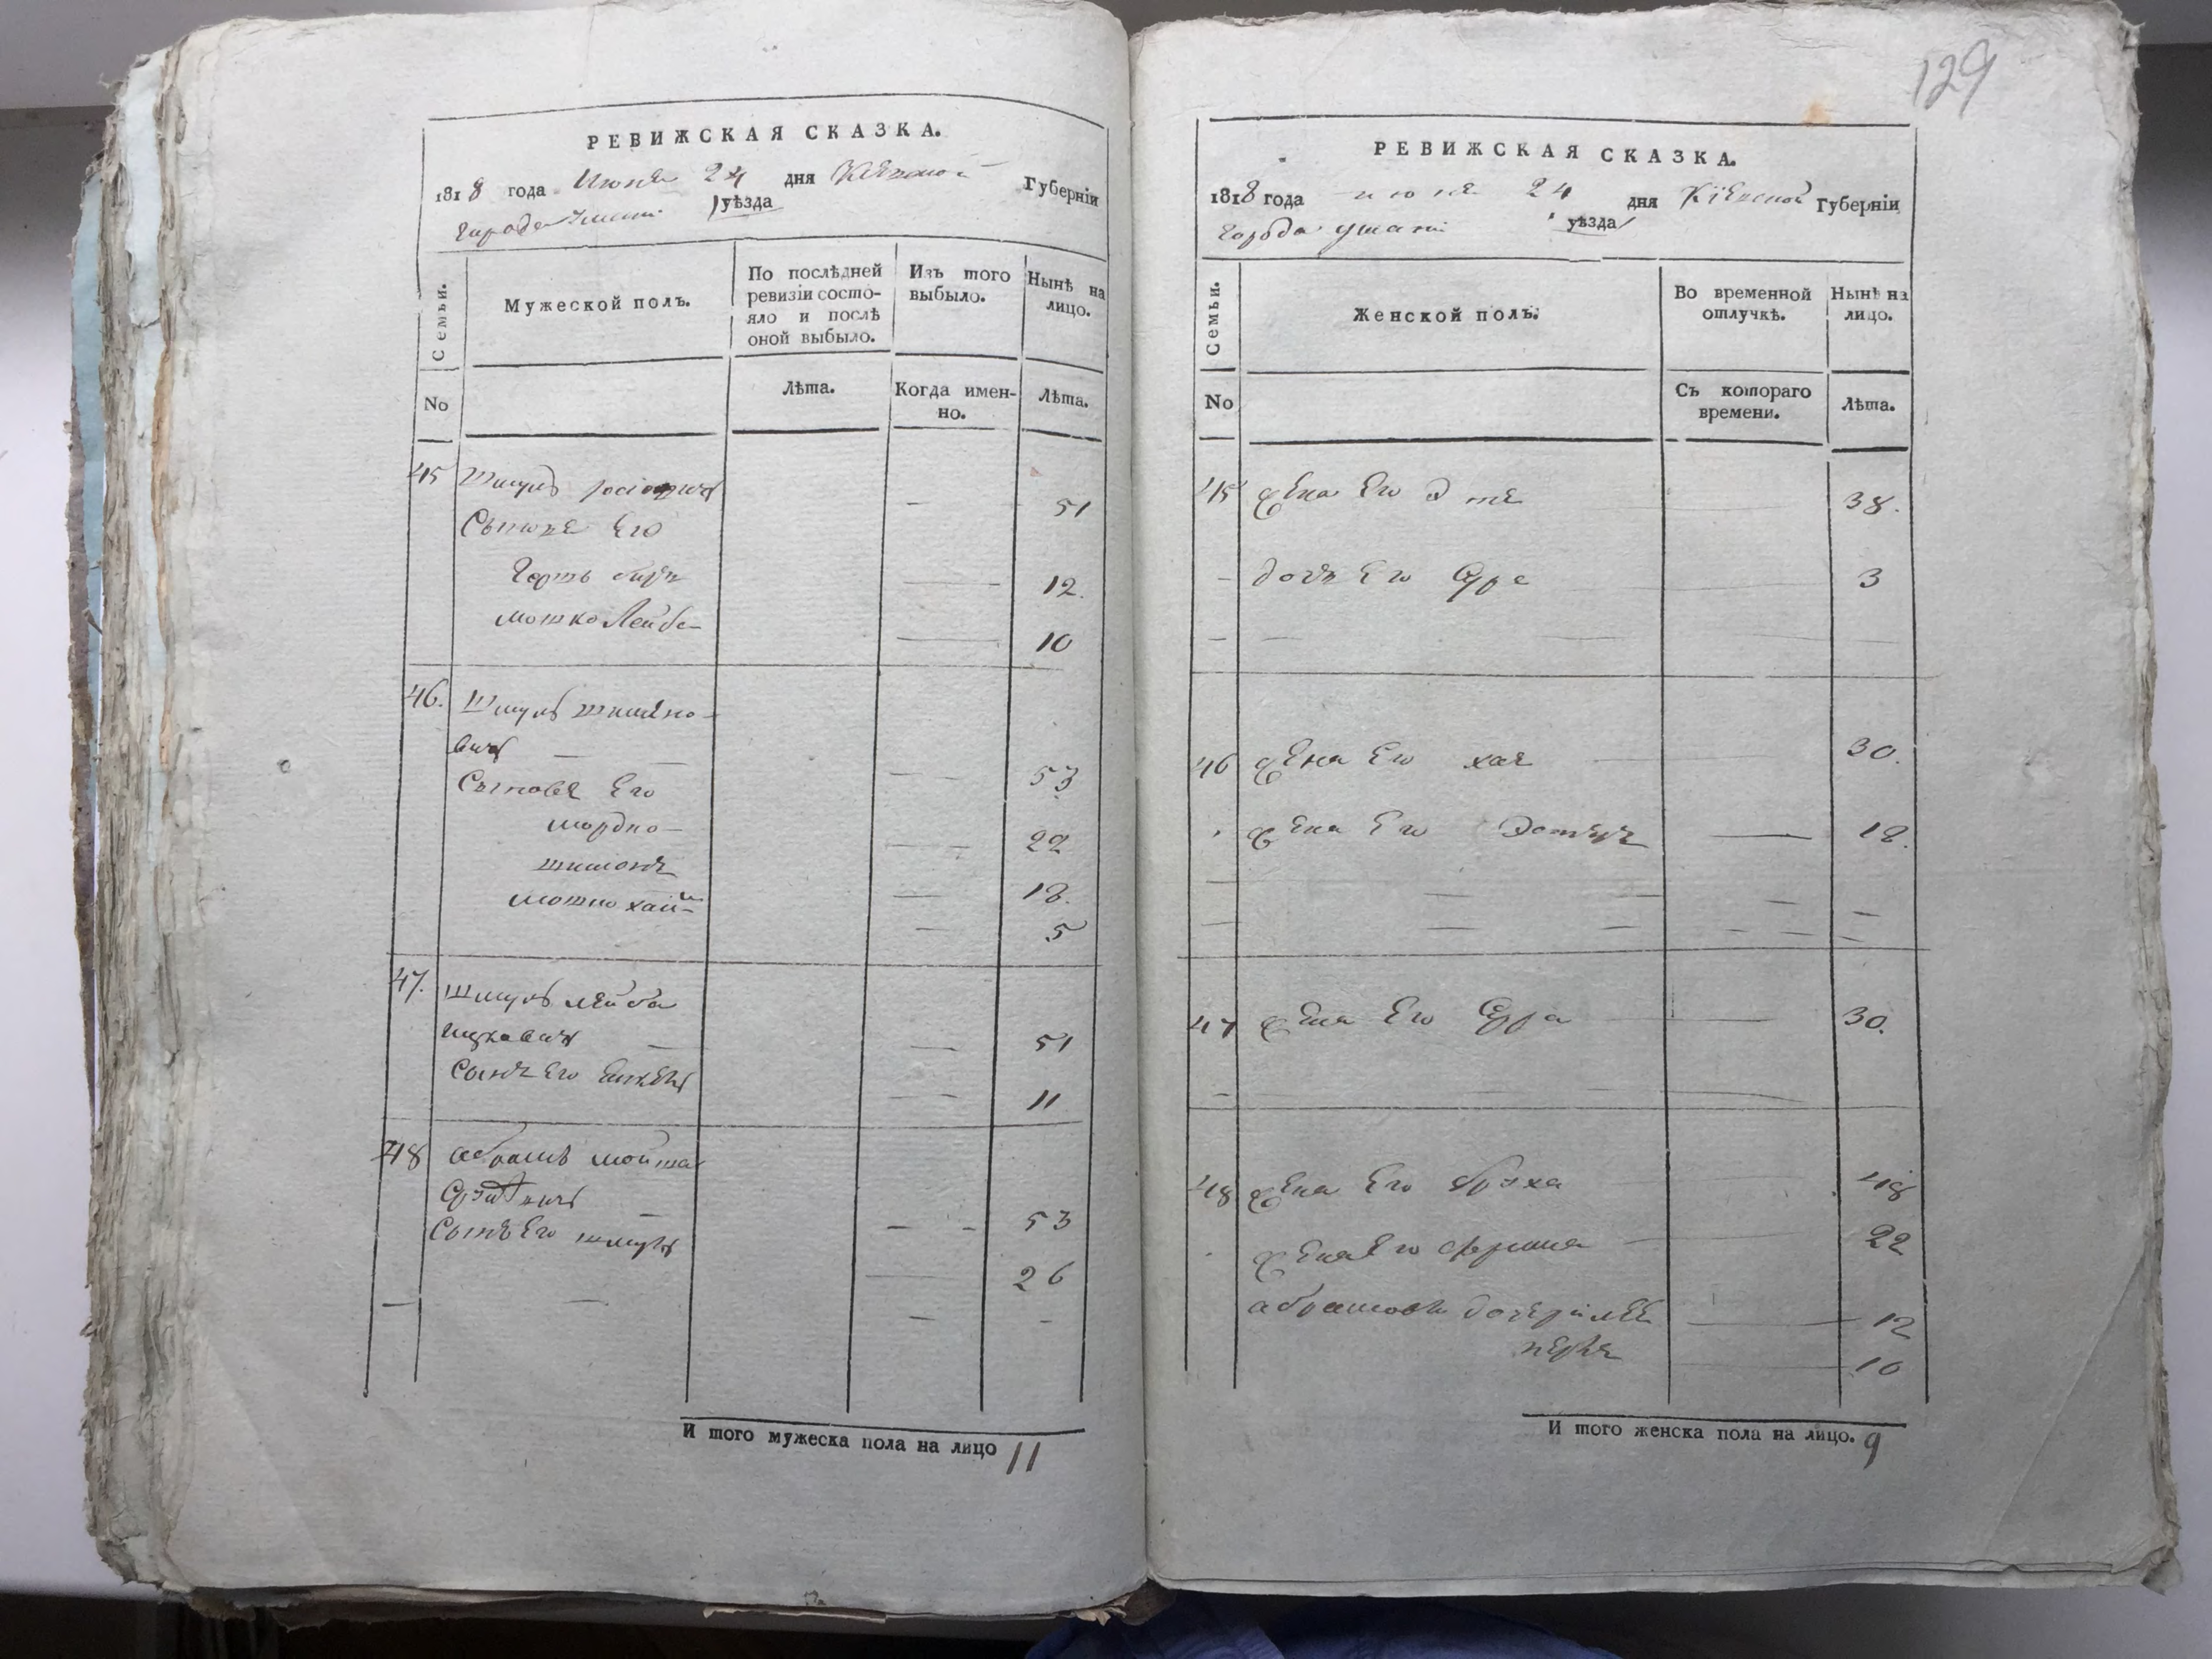 РЕВИЖСКАЯ СКАЗКА.
1818 года Июня 24 дня Кіевской Губерніи
Города Умани уѣзда
Семьи.
Мужеской полъ.
По послѣдней ревизіи состо-
яло и послѣ оной выбыло.
Изъ того выбыло.
Нынѣ на лицо.
No
Лѣта.
Когда имен-
но.
Лѣта.
45 Шмуль
51
Сыновя Его
12.
мошко Лейба
10
46. Шмуль шимано-
вичь
53
Сыновя Его
мордко
22
шимонъ
18.
мошко хаим
5
47. Шмуль лейба
ицковичь
51
Сынъ Его
11
48 абрамъ
53
Сынъ Его шмуль
26
И того мужеска пола на лицо 11
129
РЕВИЖСКАЯ СКАЗКА.
1818 года июня 24 дня Кіевской Губерніи
Города умани уѣзда
Семьи.
Женской полъ.
Во временной отлучкѣ.
Нынѣ на лицо.
No
Съ котораго времени.
Лѣта.
45 жена Его 38.
дочь Его Сура 3
46 жена Его хая 30.
жена Его Эстеръ 18.
47 жена Его Сура 30.
48 жена Его 48
жена Его 22
12
10
И того женска пола на лицо. 9